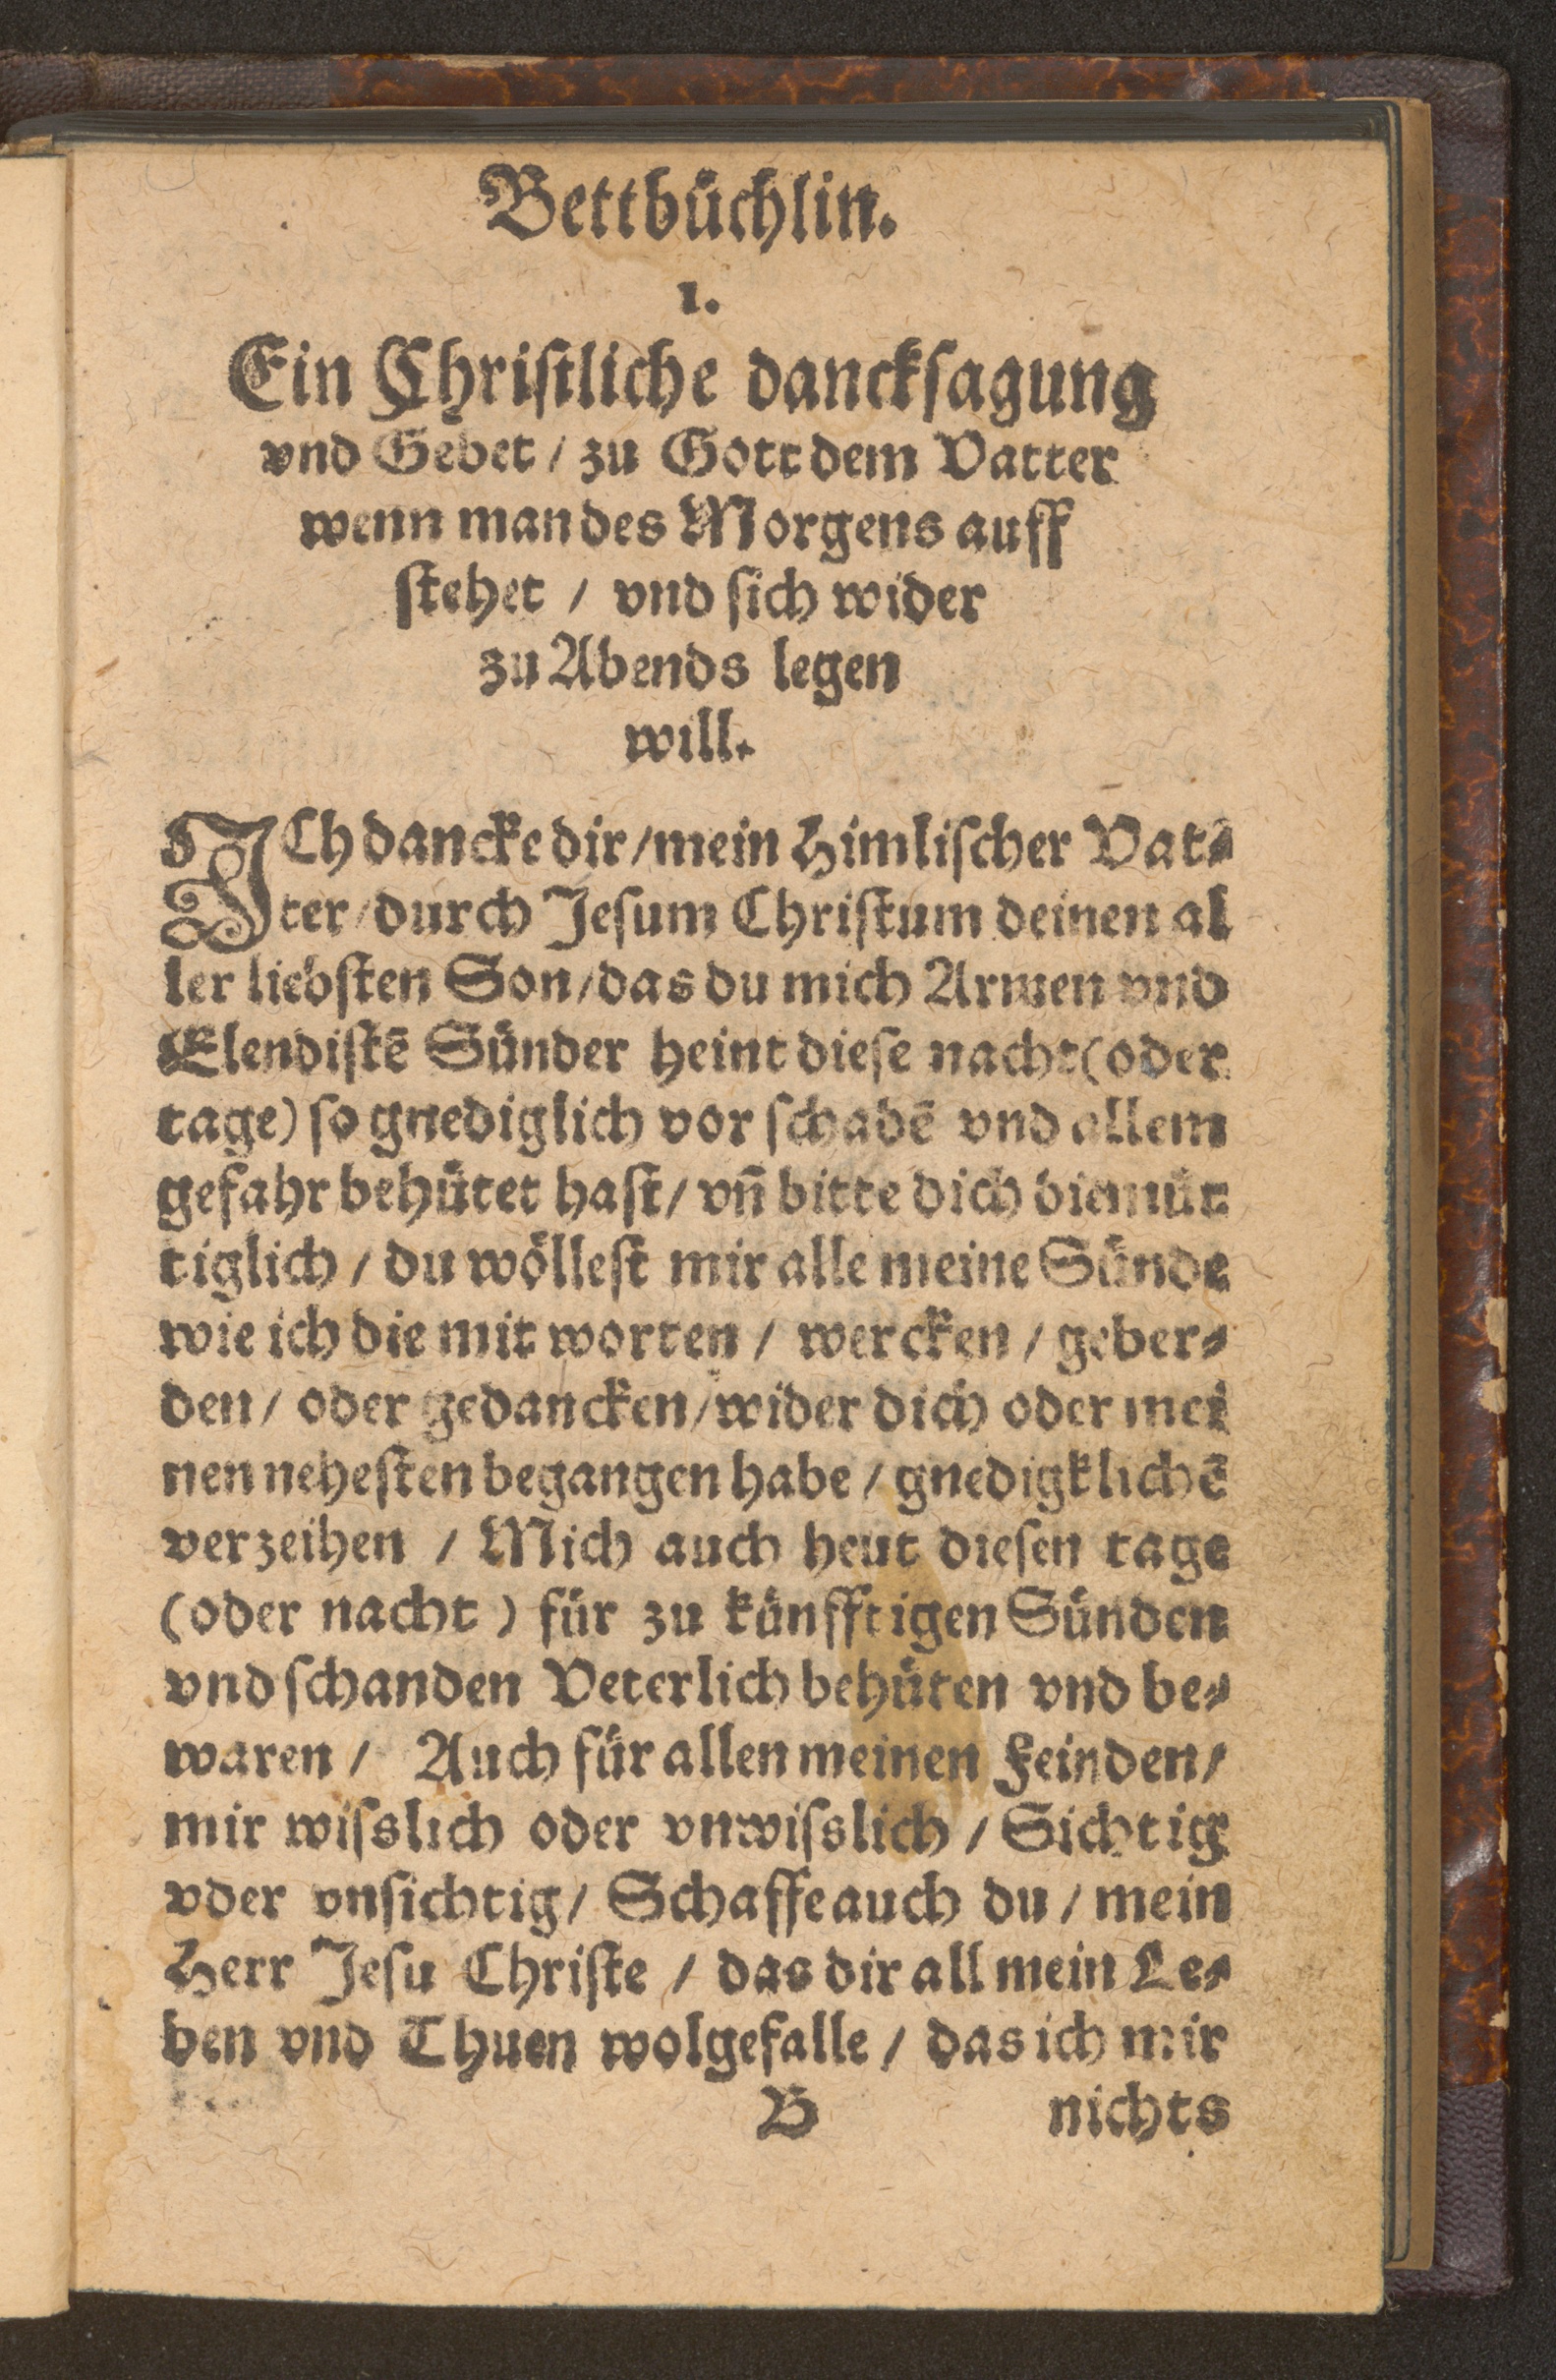 Bettbüchlin.
1.
Ein Christliche dancksagung
vnd Gebet / zu Gott dem Vatter
wenn man des Morgens auff
stehet / vnd sich wider
zu Abends legen
will.
ICh dancke dir / mein Himlischer Vat⸗
ter / durch Jesum Christum deinen al
ler liebsten Son / das du mich Armen vnd
Elendistē Sünder heint diese nacht (oder
tage) so gnediglich vor schadē vnd allem
gefahr behütet hast / vn̄ bitte dich diemüt
tiglich / du wöllest mir alle meine Sünde
wie ich die mit worten / wercken / geber⸗
den / oder gedancken / wider dich oder mei
nen nehesten begangen habe / gnedigklichē
verzeihen / Mich auch heut diesen tage
(oder nacht) für zu künfftigen Sünden
vnd schanden Veterlich behüten vnd be⸗
waren / Auch für allen meinen Feinden /
mir wisslich oder vnwisslich / Sichtig
vder vnsichtig / Schaffe auch du / mein
Herr Jesu Christe / das dir all mein Le⸗
ben vnd Thuen wolgefalle / das ich mir
B nichts